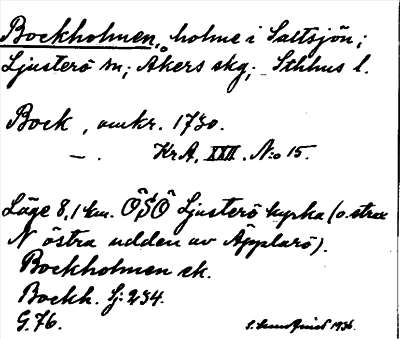 Bockholmen, holme i Saltsjön;
Ljusterö sn; Åkers skg; Sthlms l.
Bock, omkr. 1730.
— . Kr A, XXII. N:o 15.
Läge 8,1 km. ÖSÖ Ljusterö kyrka (o. strax
N östra udden av Äpplarö).
Bockholmen ek.
Bockh. Sj: 234.
G. 76.
1936.